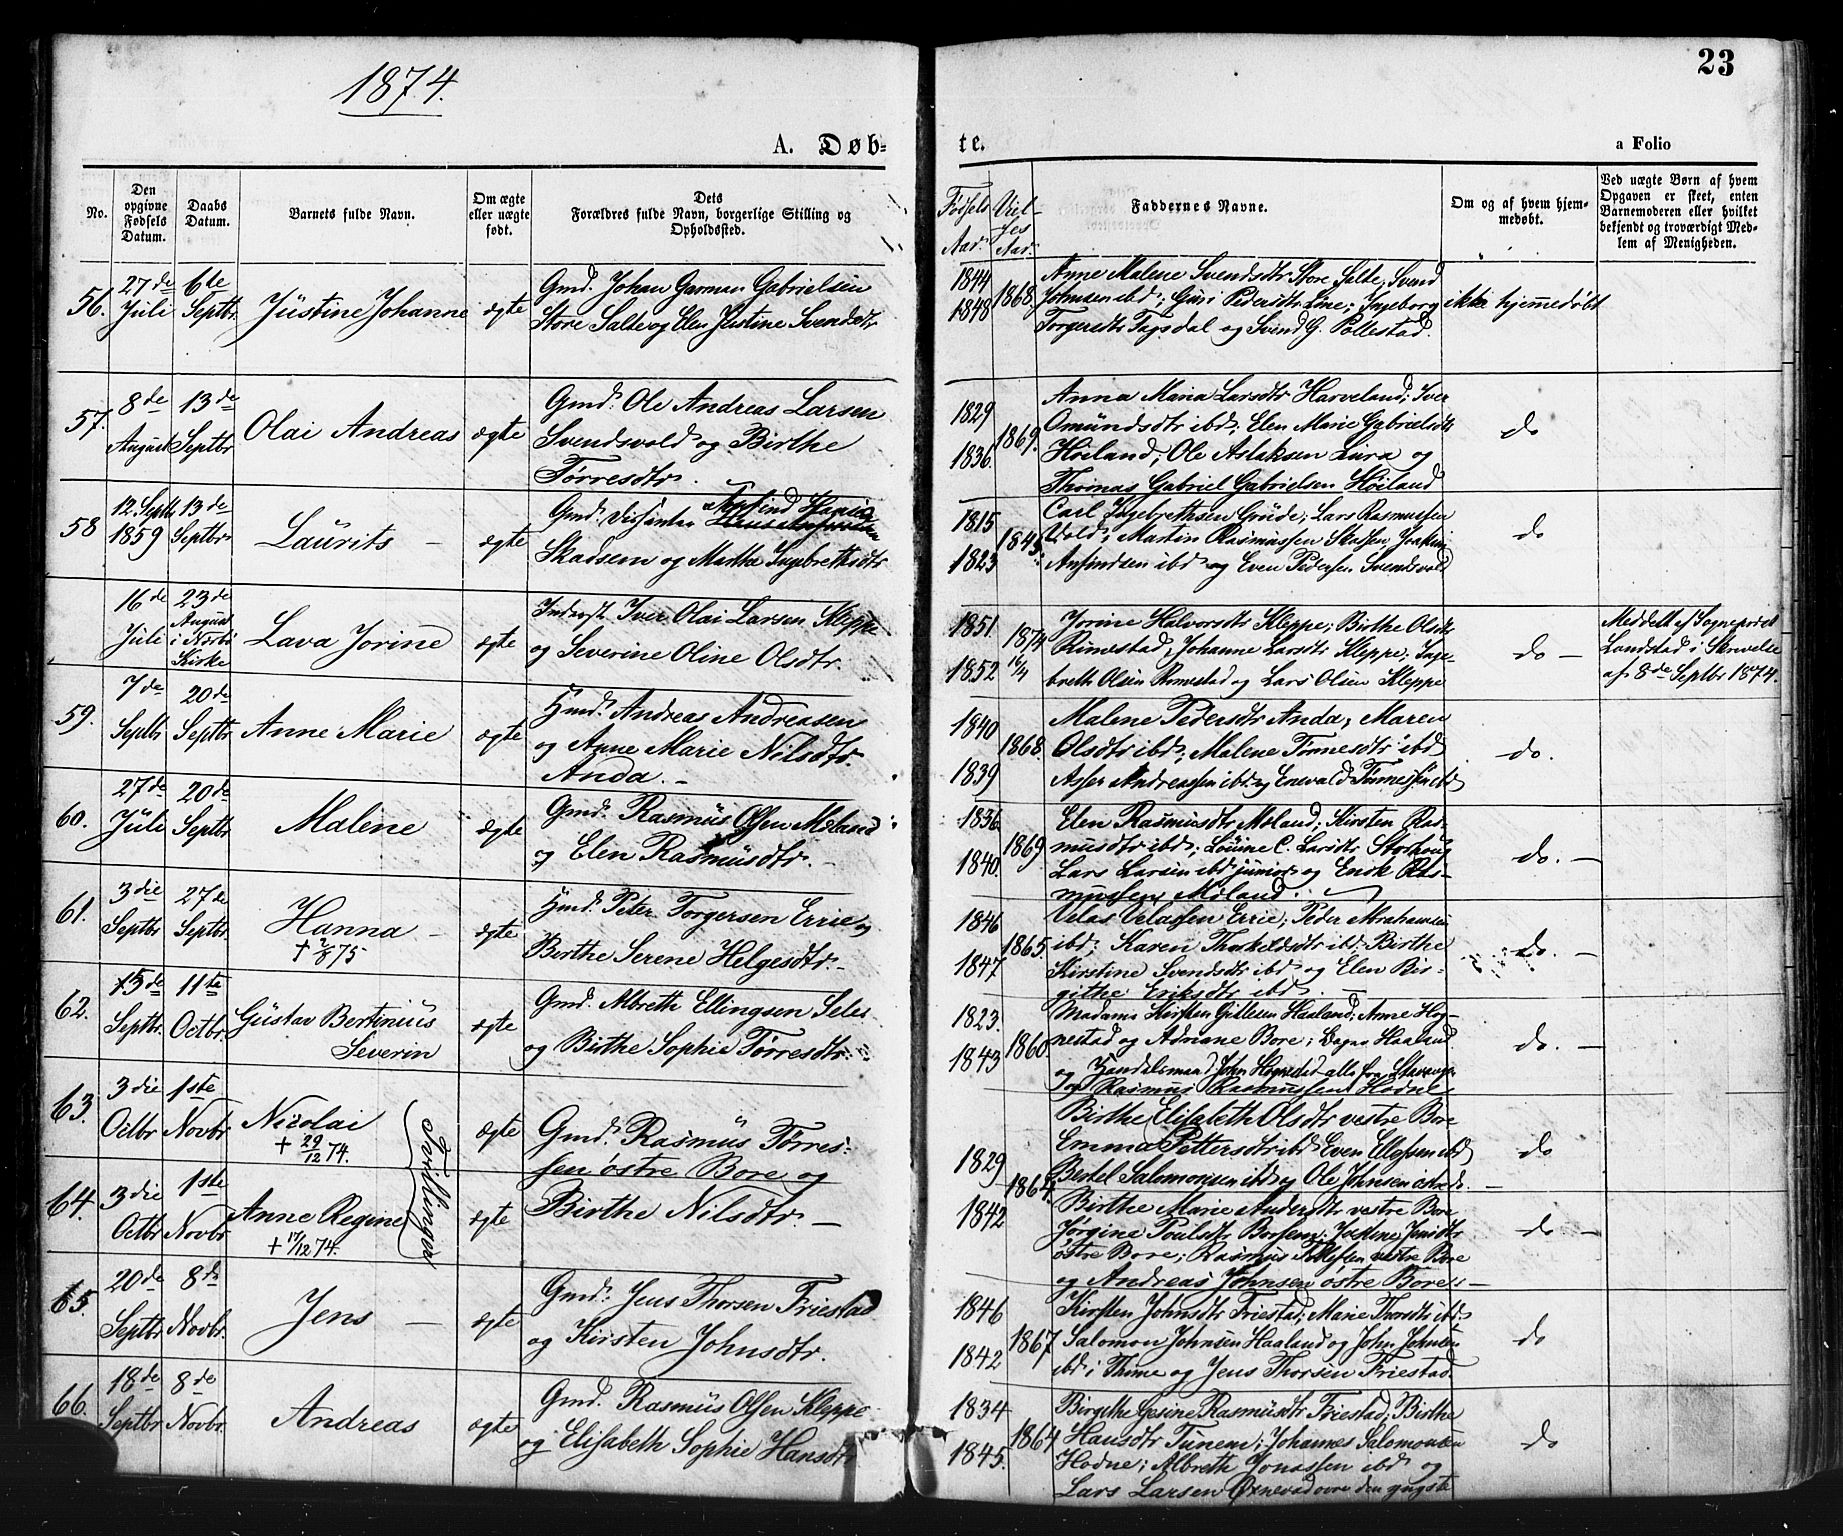 1874.
23
A. Døb=
te.
a Folio
No.
Den opgivne Fødsels Datum.
Daabs Datum.
Barnets fulde Navn.
Om ægte eller uægte født.
Dets Forældres fulde Navn, borgerlige Stilling og Opholdssted.
Fødsels Aar.
Viel-ses Aar.
Faddernes Navne.
Om og af hvem hjem-medøbt.
Ved uægte Børn af hvem Opgaven er skeet, enten Barnemoderen eller hvilket bekjendt og troværdigt Med-lem af Menigheden.
56. 27de Juli 6te Septbr. Justine Johanne ægte
Gmd. Johan Garman Gabrielsen
Store Salte og Elen Justine Svendsdtr
1844 1848 1868.
Anne Malene Svendsdtr Store Salte; Svend
Johnsen ibd; Guri Pedersdtr Line; Ingeborg
Torgersdtr Tagsdal og Svend G. Pollestad.
ikke hjemmedøbt
57. 8de August 13de Septbr. Olai Andreas ægte
Gmd. Ole Andreas Larsen
Svendsvold og Birthe
Tørresdtr.
1829 1836. 1869.
Anna Maria Larsdtr Harveland; Iver
Omundsdtr ibd; Elen Marie Gabrielsdtr
Høiland; Ole Aslaksen Lura og
Thomas Gabriel Gabrielsen Høiland
do
58 12. Septbr 1859 13de Septbr. Laurits – ægte
Gmd. Disenter
Skadsem og Martha Ingebrethsdtr
1815 1823 1845.
Carl Ingebrethsen Grude; Lars Rasmussen
Vold; Martin Rasmussen Skassen Joakim
Anfindsen ibd og Even Pedersen Svendsvold
do
16de Juli 23de August i Norbø Kirke Lava Jorine ægte
Indergst. Iver Olai Larsen Kleppe
og Severine Oline Olsdtr.
1851. 1852 1874 16/4
Jorine Halvorsdtr Kleppe; Birthe Olsdtr
Rimestad; Johanne Larsdtr Kleppe; Inge-
breth Olsen Rimestad og Lars Olsen Kleppe
do –
Meddelt af Sogneprest
Landstad i Skrivelse
af 8de Septbr 1874.
59. 7de Septbr 20de Septbr. Anne Marie ægte
Hmd. Andreas Andreasen
og Anne Marie Nilsdtr.
Anda. –
1840 1839 1868.
Malene Pedersdtr Anda; Maren
Olsdtr ibd; Malene Tønnesdtr ibd
Asser Andreassen ibd og Enevald Tønnessen ibd
do.
60. 27de Juli 20de Septbr Malene ægte
Gmd. Rasmus Olsen Møland
og Elen Rasmusdtr. –
1836 1840. 1869
Elen Rasmusdtr Møland; Kirsten Ras-
musdtr ibd; Louine C. Larsdtr Storhoug
Lars Larsen ibd junior og Enok Ras-
mussen Møland.
do. –
61. 3die Septbr 27de Septbr. Hanna – ægte
+ 2/8 75
Hmd. Peter Torgersen Errie og
Birthe Serene Helgesdtr. –
1846 1847 1865.
Velas Velassen Errie; Peder Abrahamsen
ibd; Karen Thorkeldsdtr ibd. Birthe
Kirstine Svendsdtr ibd og Elen Bir-
githe Eriksdtr ibd.
do. –
62. 15de Septbr. 11te Octbr. Gustav Bertinius
Severin ægte
Gmd. Albreth Ellingsen Seles
og Birthe Sophie Tørresdtr.
1823. 1843 1860.
Madame Kirsten Gittesen Haaland; Anne Hog-
nestad og Adriane Bore; Haaland
og Handelsmand John Hognestad alle fra Stavanger
og Rasmus Rasmussen Hodne
do. –
63. 3die Octbr 1ste Novbr. Nicolai
+ 29/12 74. ægte
Tvillinger
Gmd. Rasmus Tørres-
sen østre Bore og
Birthe Nilsdtr. –
1829 1842 1864.
Birthe Elisabeth Olsdtr vestre Bore
Emma Pettersdtr ibd Even Ellefsen ibd
Bertel Salomonsen ibd og Ole Johnsen østre do. –
do
64. 3die Octbr 1ste Novbr. Anne Regine
+ 17/12 74. ægte
Birthe Marie Andersdtr vestre Bore
Jørgine Poulsdtr
østre Bore; Rasmus vestre Bore
og Andreas Johnsen østre Bore. –
do –
65. 20de Septbr 8de Novbr. Jens – ægte
Gmd. Jens Thorsen Friestad
og Kirsten Johnsdtr.
1846 1842 1867
Kirsten Johnsdtr Friestad; Marie Thorsdtr ibd;
Salomon Johnsen Haaland og John Johnsen
ibd i Thime og Jens Thorsen Friestad
do
66. 18de Septbr 8de Novbr. Andreas ægte
Gmd. Rasmus Olsen Kleppe
og Elisabeth Sophie Hansdtr
1834 1845. 1864
Birgithe Gesine Rasmusdtr Friestad; Birthe
Hansdtr Tunem; Johannes Salomonsen
Hodne; Albreth Jonassen ibd og
Lars Larsen Øxnevad ovre den yngste
do